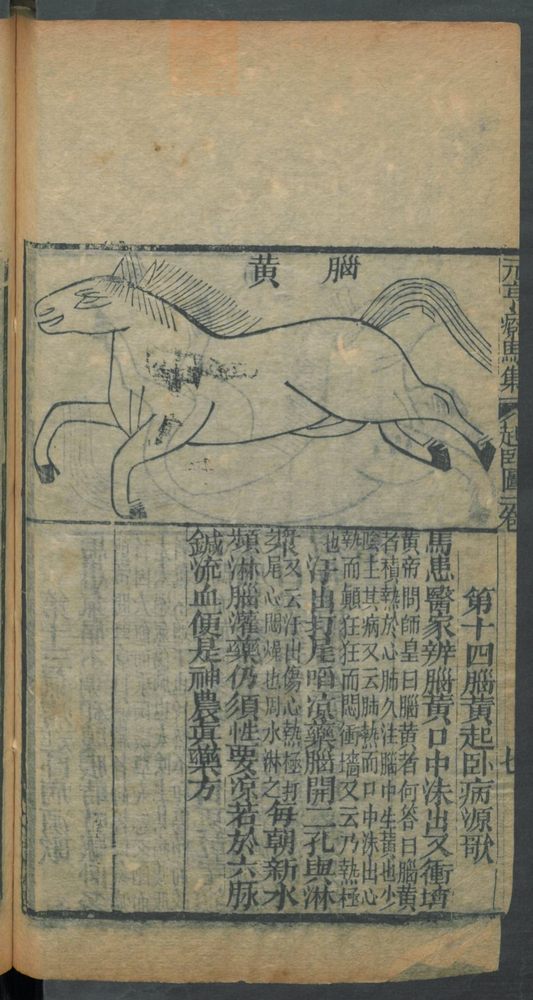 元亨療馬集 起臥圖二卷 七
腦黄
第十四腦黄起卧病源歌
馬患醫家辨腦黄口中沫出又衝墻
黄帝問師皇曰腦黄者何荅曰腦黄
者積熱於心肺久注腦中生黄也少
陰主其病又云肺熱而口中沫出心
熱而顛狂狂而悶衝墻又云乃熱極
也
汗出打尾啗凉藥腦開二孔與淋
漿又云汗出傷心熱極打
尾心悶燥也用水淋之每朝新水
頻淋腦灌藥仍須性要凉若於六脉
鍼流血便是神農眞藥方